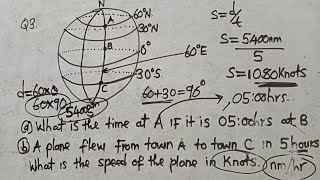 Q3.
N
60°N.
A
30°N
B
0°
60°E
30°S.
C
S = d/t
S = 5400nm
5
S = 1080 Knots
d = 60×θ
60×90
5400nm
60+30 = 90°
05:00hrs.
(a) What is the time at A if it is 05:00hrs at B
(b) A plane flew from town A to town C in 5 hours
What is the speed of the plane in Knots. (nm/hr)